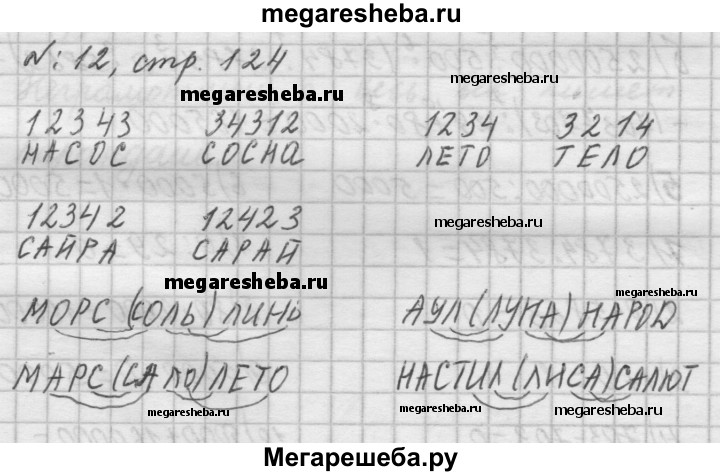 megaresheba.ru
№: 12, стр. 124
megaresheba.ru
megaresheba.ru
12343 34312 1234 3214
НАСОС СОСНА ЛЕТО ТЕЛО
12342 12423
megaresheba.ru
САЙРА САРАЙ
megaresheba.ru
megaresheba.ru
МОРС (СОЛЬ) ЛИНЬ АУЛ (ЛУНА) НАРОД
megaresheba.ru
МАРС (САЛО) ЛЕТО НАСТИЛ (ЛИСА) САЛЮТ
megaresheba.ru megaresheba.ru megaresheba.ru
Мегарешеба.ру